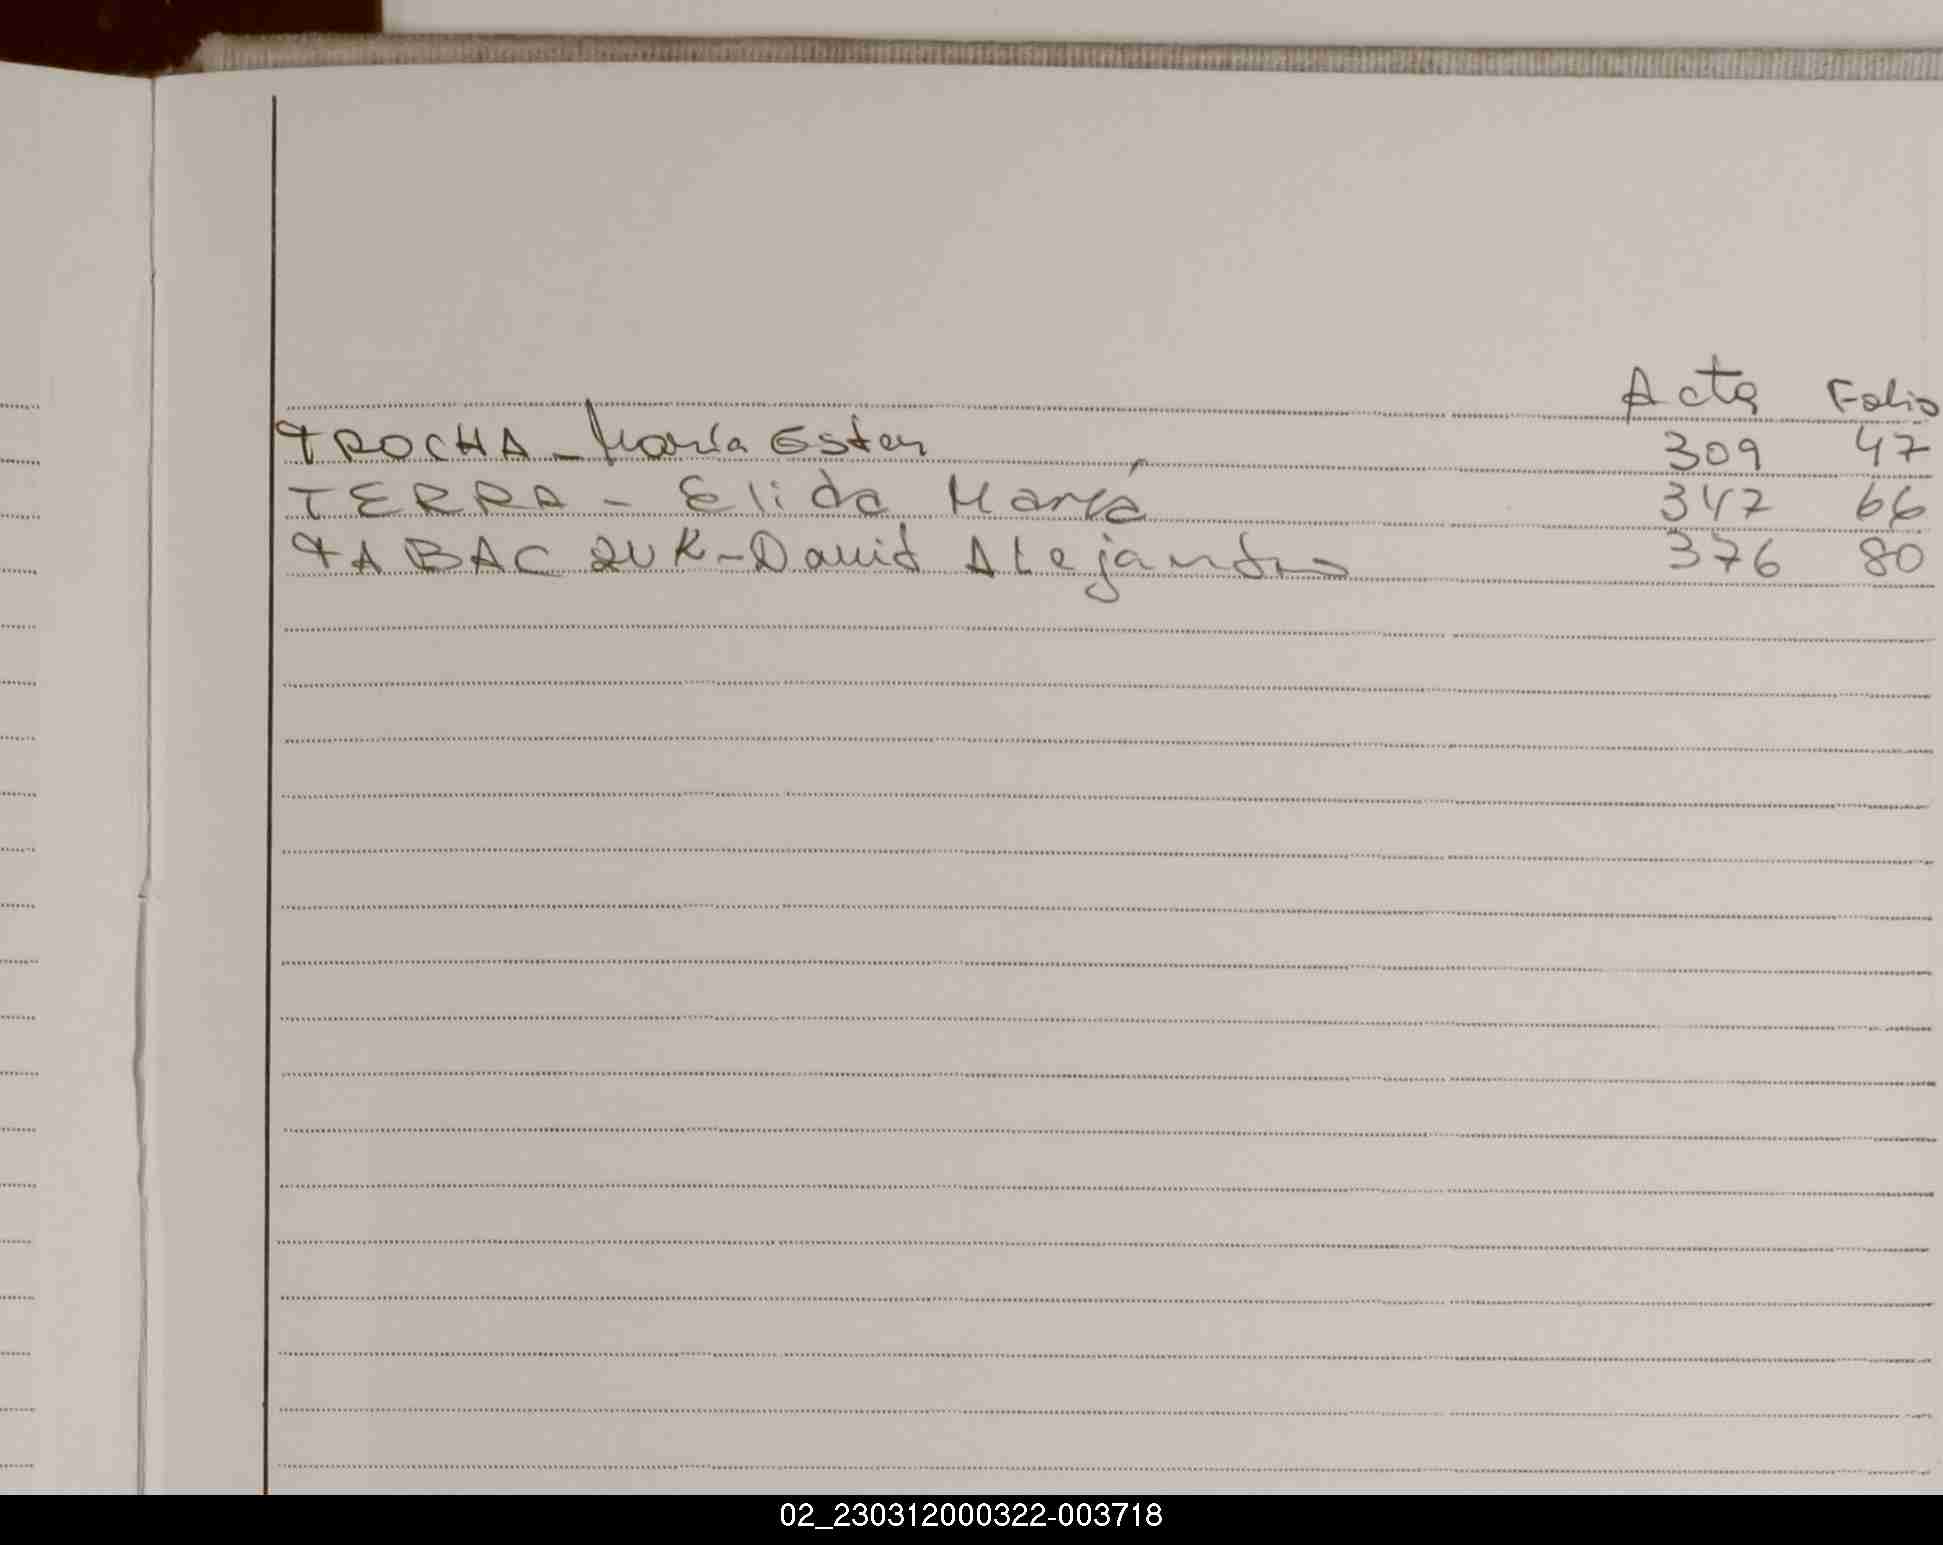 Acta Folio
TROCHA - María Ester 309 47
TERRA - Elida María 347 66
TABACZUK - David Alejandro 376 80
02_230312000322-003718